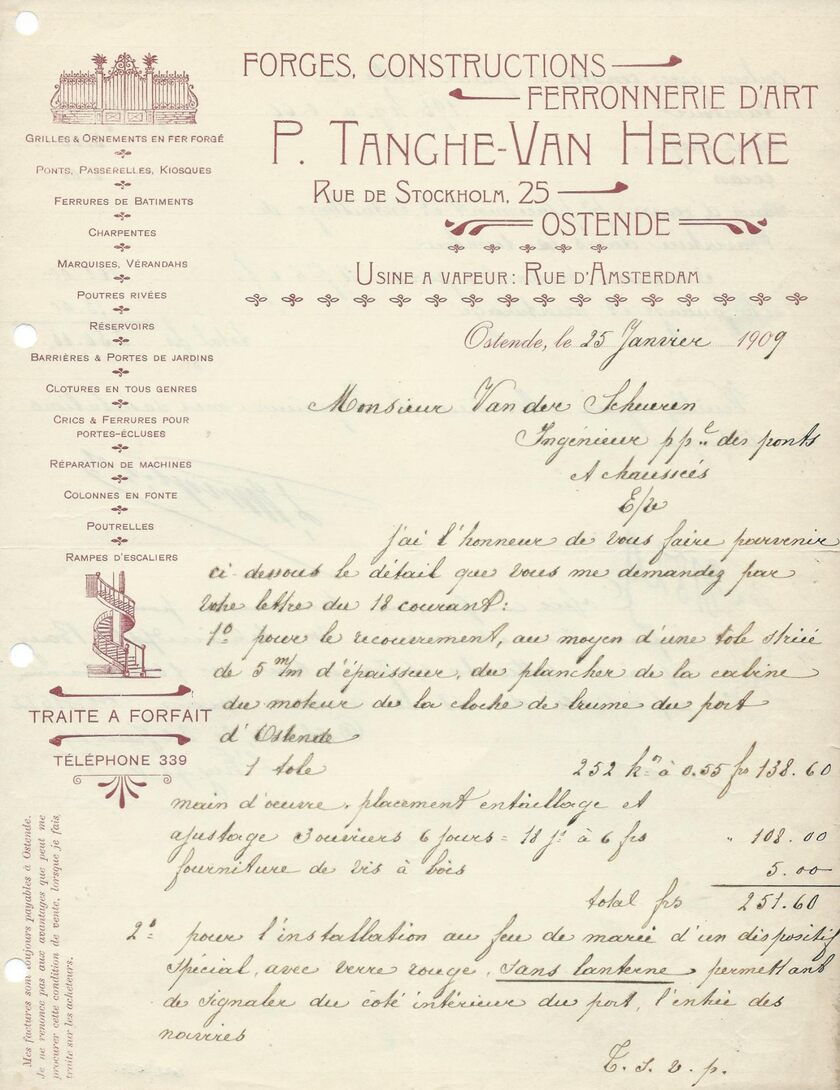 FORGES, CONSTRUCTIONS
FERRONNERIE D'ART
P. TANGHE-VAN HERCKE
RUE DE STOCKHOLM, 25
OSTENDE
USINE A VAPEUR: RUE D'AMSTERDAM
GRILLES & ORNEMENTS EN FER FORGÉ
PONTS, PASSERELLES, KIOSQUES
FERRURES DE BATIMENTS
CHARPENTES
MARQUISES, VÉRANDAHS
POUTRES RIVÉES
RÉSERVOIRS
BARRIÈRES & PORTES DE JARDINS
CLOTURES EN TOUS GENRES
CRICS & FERRURES POUR
PORTES-ÉCLUSES
RÉPARATION DE MACHINES
COLONNES EN FONTE
POUTRELLES
RAMPES D'ESCALIERS
TRAITE A FORFAIT
TÉLÉPHONE 339
Mes factures sont toujours payables à Ostende.
Je ne renonce pas aux avantages que peut me
procurer cette condition de vente, lorsque je fais
traite sur les acheteurs.
Ostende, le 25 Janvier 1909
Monsieur Van der Scheuren
Ingénieur pp.l des ponts
et chaussées
E/v
j'ai l'honneur de vous faire parvenir
ci-dessous le détail que vous me demandez par
votre lettre du 18 courant:
1° pour le recouvrement, au moyen d'une tole striée
de 5 m/m d'épaisseur, du plancher de la cabine
du moteur de la cloche de brume du port
d'Ostende
1 tole 252 ks à 0.55 frs 138.60
main d'oeuvre, placement entaillage et
ajustage 3 ouvriers 6 jours = 18 js à 6 frs " 108.00
fourniture de vis à bois 5.00
total frs 251.60
2° pour l'installation au feu de marée d'un dispositif
spécial, avec verre rouge, sans lanterne permettant
de signaler du coté intérieur du port, l'entrée des
navires
T. s. v. p.